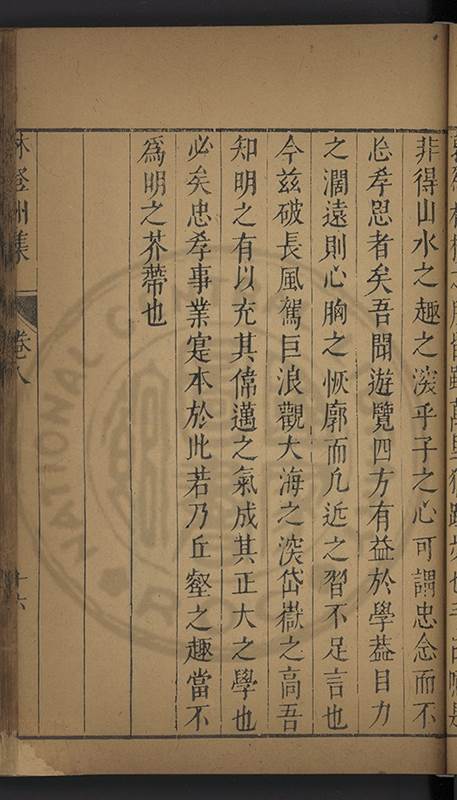 非得山水之趣之深乎子之心可謂忠念而不
忘孝思者矣吾聞遊覽四方有益於學益目力
之濶遠則心胸之恢廓而凡近之習不足言也
今茲破長風駕巨浪觀大海之深岱嶽之高吾
知明之有以充其偉邁之氣成其正大之學也
必矣忠孝事業寔本於此若乃丘壑之趣當不
為明之芥蔕也
林登州集
卷八
十六